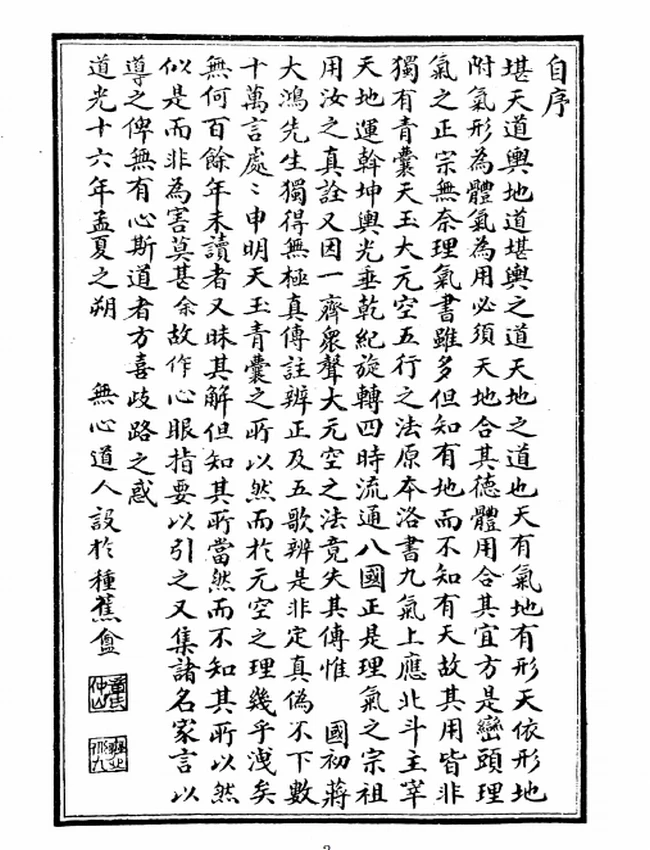 自序
堪天道輿地道堪輿之道天地之道也天有氣地有形天依形地
附氣形為體氣為用必須天地合其德體用合其宜方是巒頭理
氣之正宗無奈理氣書雖多但知有地而不知有天故其用皆非
獨有青囊天玉大元空五行之法原本洛書九氣上應北斗主宰
天地運斡坤輿光垂乾紀旋轉四時流通八國正是理氣之宗祖
用汝之真詮又因一齊眾聲大元空之法竟失其傳惟 國初蔣
大鴻先生獨得無極真傳註辨正及五歌辨是非定真偽不下數
十萬言處〻申明天玉青囊之所以然而於元空之理幾乎洩矣
無何百餘年未讀者又昧其解但知其所當然而不知其所以然
似是而非為害莫甚余故作心眼指要以引之又集諸名家言以
導之俾無有心斯道者方喜歧路之惑
道光十六年孟夏之朔 無心道人設於種蕉盦
章氏仲山